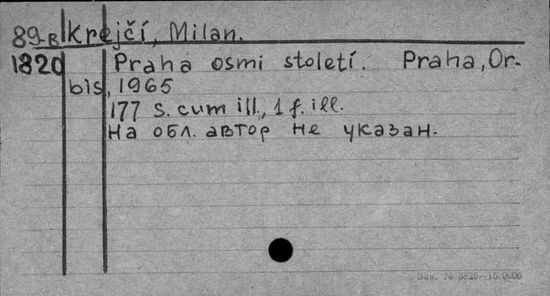 89-B Krejčí, Milan.
1820 Praha osmi století. Praha, Or-
bis, 1965
177 s. cum ill., 1 f. ill.
На обл. автор не указан.
Зак. № 3826—15.0000